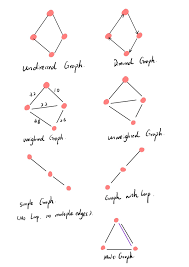 Undirected Graph
Directed Graph
12
10
22
48
26
weighted Graph
unweighted Graph
simple Graph
(No Loop, no multiple edges)
Graph with Loop
Multi Graph